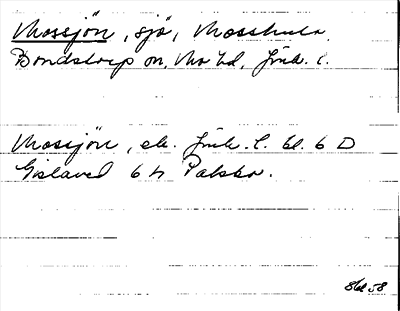 Mossjön, sjö, Mosshult
Bondstorp sn, Mo hd, Jönk. l.
Mossjön, ek. Jönk. l. bl. 6 D
Gislaved 6 h Palsbo.